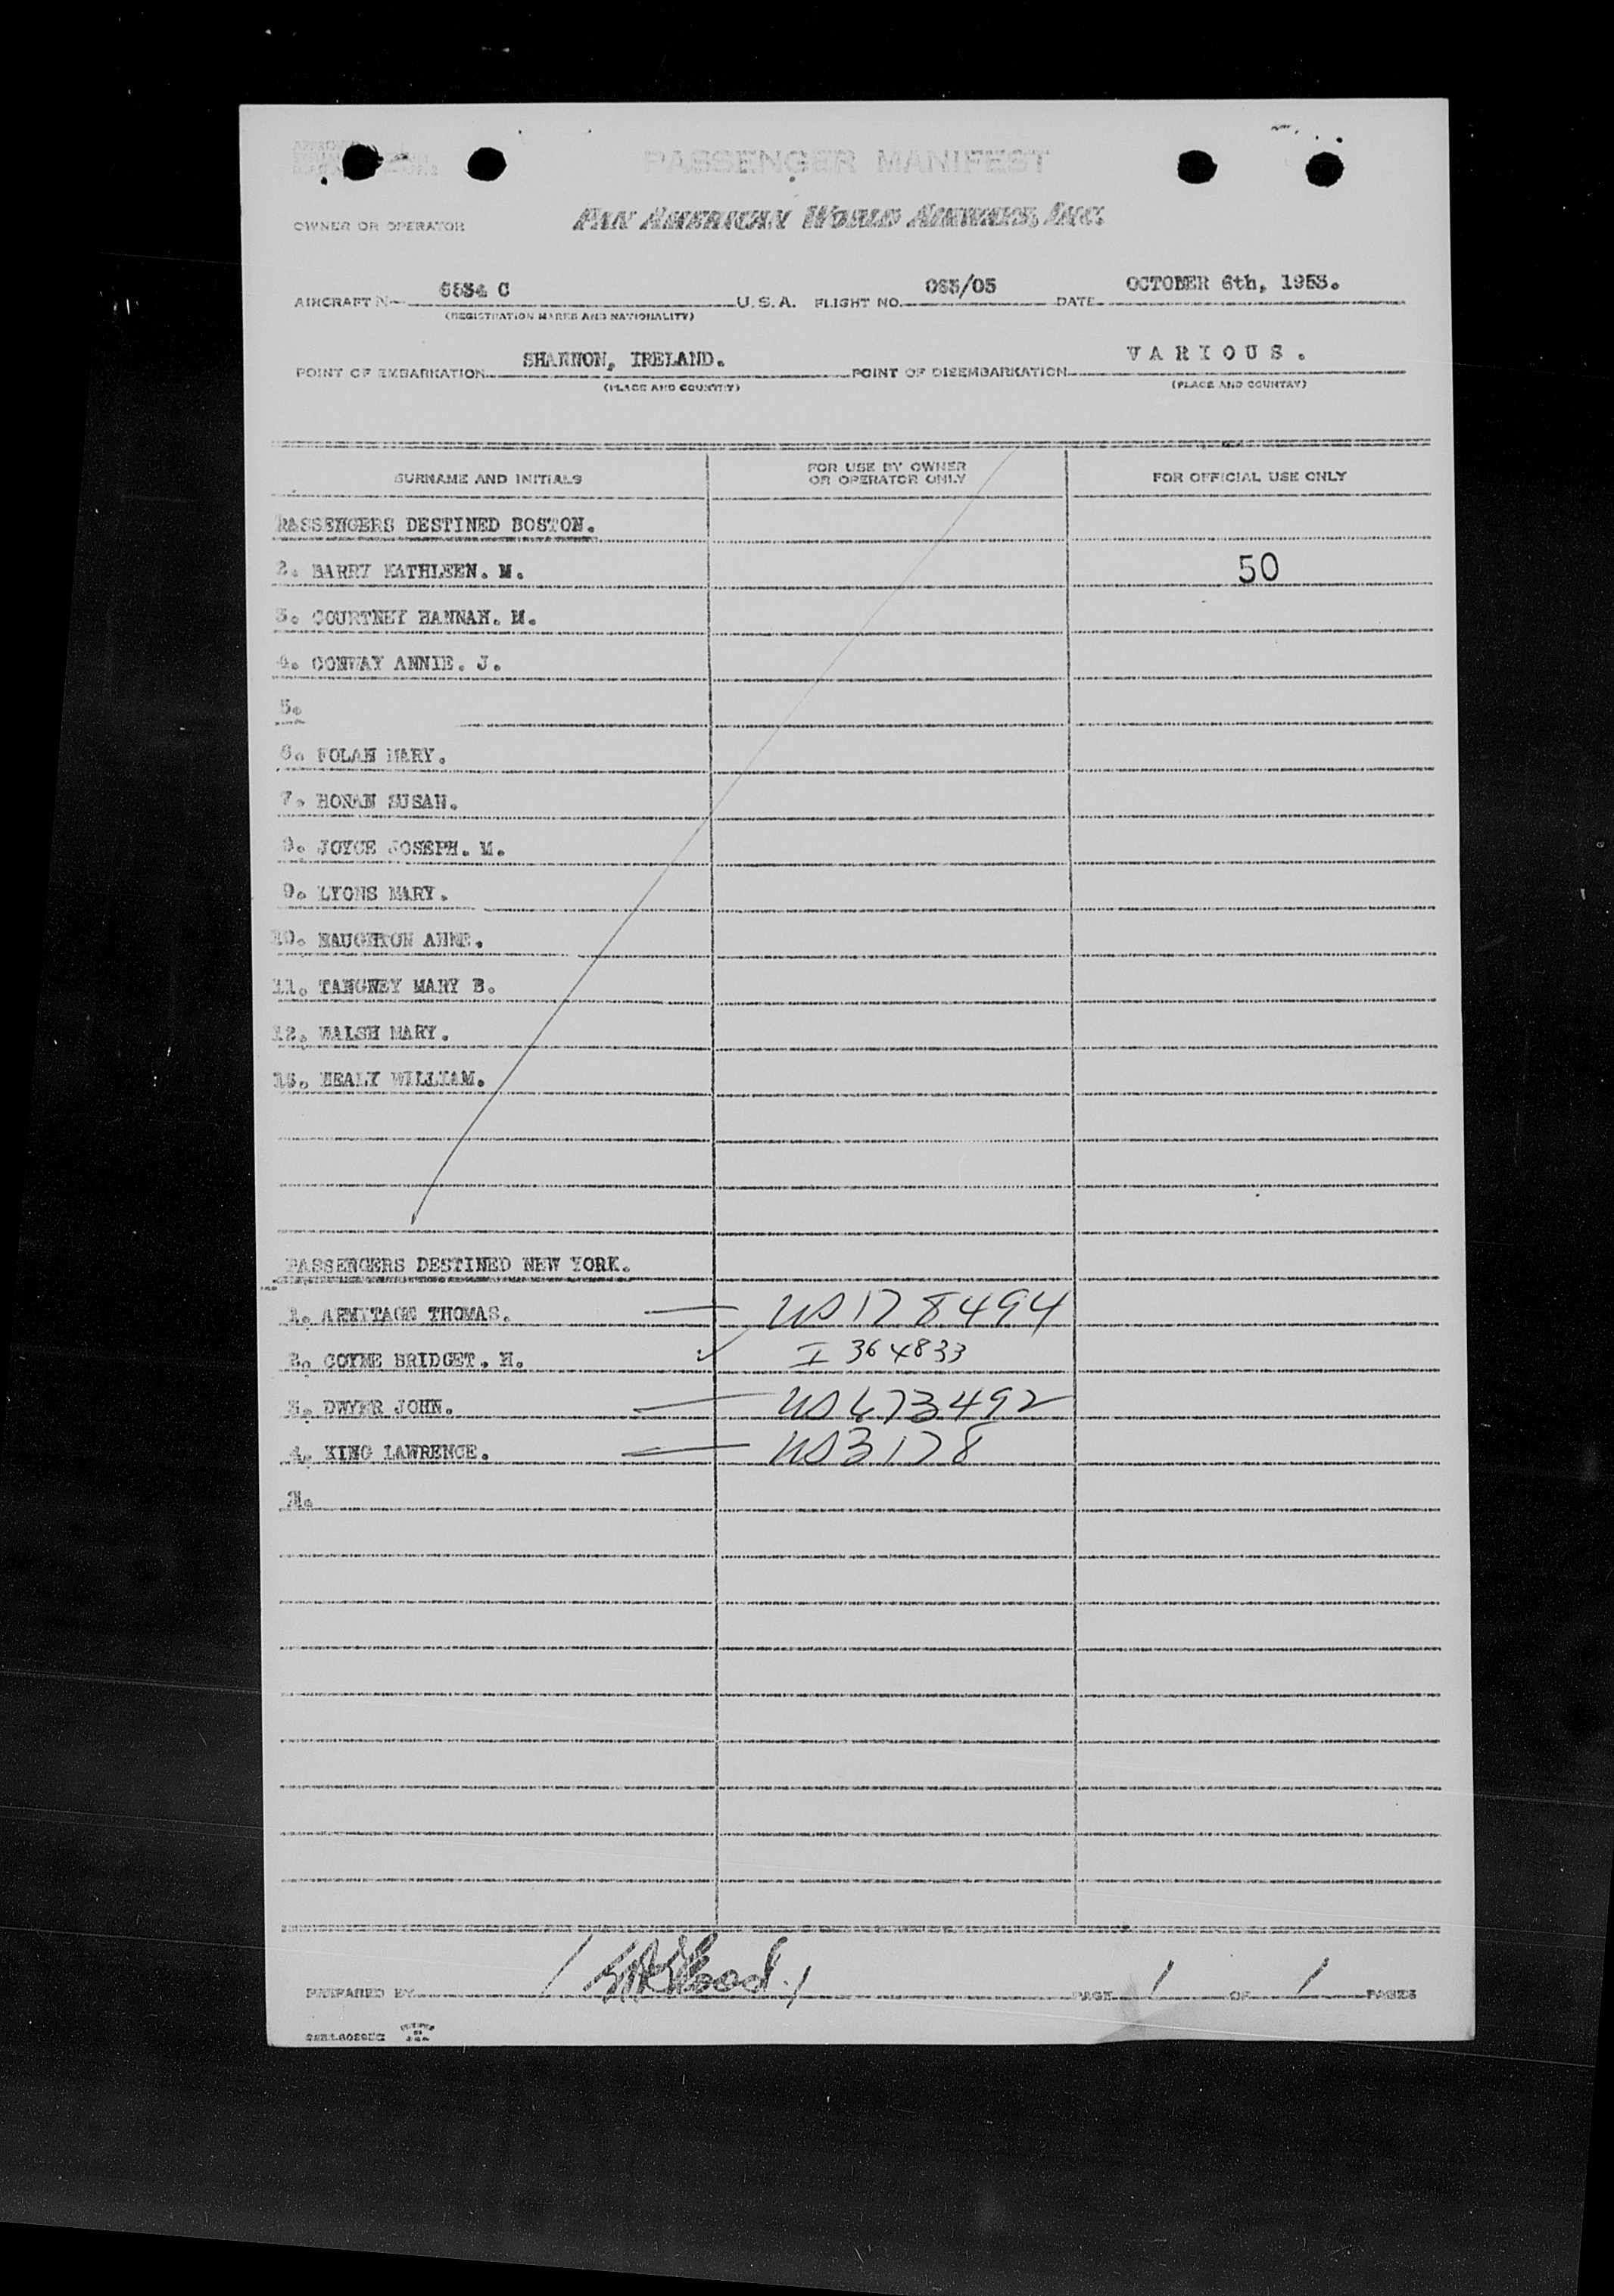 PASSENGER MANIFEST
OWNER OR OPERATOR PAN AMERICAN WORLD AIRWAYS, INC.
AIRCRAFT N 6534 C U.S.A. FLIGHT NO. 035/05 DATE OCTOBER 6th, 1953.
(REGISTRATION MARKS AND NATIONALITY)
POINT OF EMBARKATION SHANNON, IRELAND. POINT OF DISEMBARKATION VARIOUS.
(PLACE AND COUNTRY) (PLACE AND COUNTRY)
SURNAME AND INITIALS FOR USE BY OWNER OR OPERATOR ONLY FOR OFFICIAL USE ONLY
PASSENGERS DESTINED BOSTON.
2. BARRY KATHLEEN. M. 50
3. COURTNEY HANNAH. M.
4. CONWAY ANNIE. J.
5.
6. FOLAN MARY.
7. HONAN SUSAN.
8. JOYCE JOSEPH. M.
9. LYONS MARY.
10. NAUGHTON ANNE.
11. TANGNEY MARY B.
12. WALSH MARY.
13. HEALY WILLIAM.
PASSENGERS DESTINED NEW YORK.
1. ARMITAGE THOMAS. — US 178494
2. COYNE BRIDGET. H. ✓ I 364833
3. DWYER JOHN. — US 673492
4. KING LAWRENCE. — US 3178
PREPARED BY PAGE 1 OF 1 PAGES